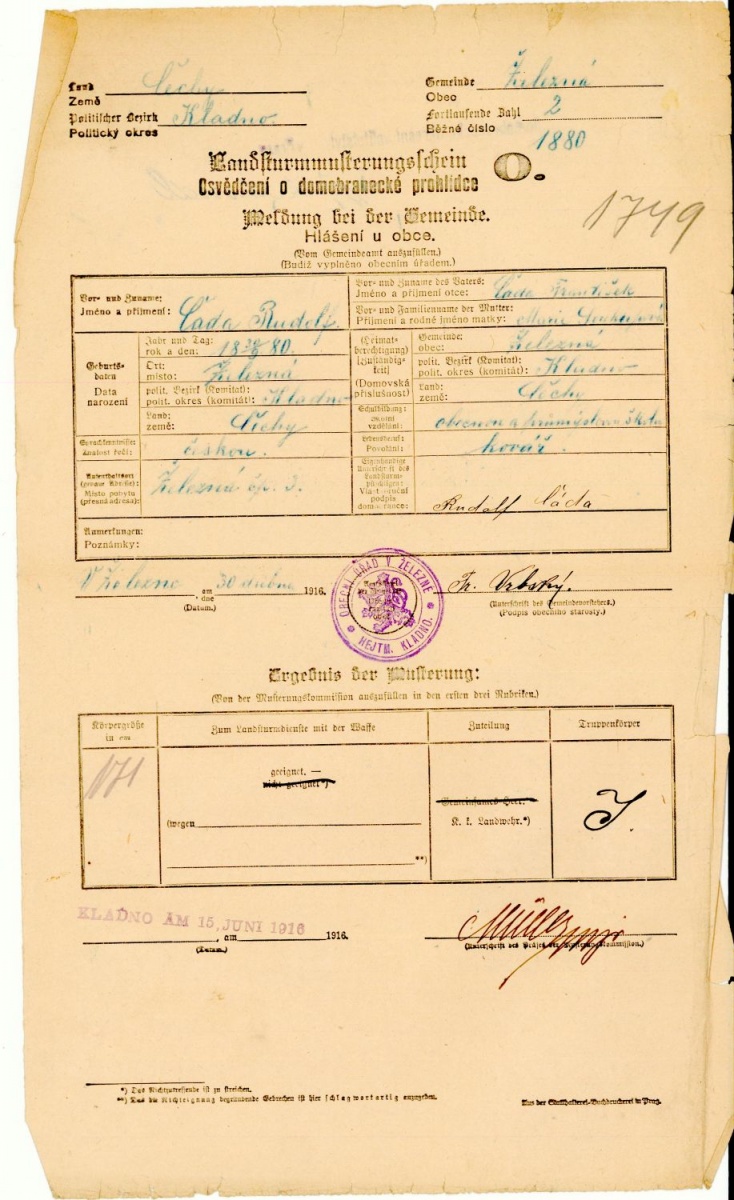 Land
Země Čechy
Politischer Bezirk
Politický okres Kladno
Gemeinde
Obec Železná
Fortlaufende Zahl
Běžné číslo 2
1880
Landsturmmusterungsschein
Osvědčení o domobranecké prohlídce
O.
Meldung bei der Gemeinde.
Hlášení u obce.
1749
(Vom Gemeindeamt auszufüllen.)
(Budiž vyplněno obecním úřadem.)
Vor- und Zuname:
Jméno a příjmení: Čáda Rudolf.
Vor- und Zuname des Vaters:
Jméno a příjmení otce: Čáda František
Vor- und Familienname der Mutter:
Příjmení a rodné jméno matky: Marie
Geburts-
daten
Data
narození
Jahr und Tag:
rok a den: 80.
Ort:
místo: Železná
polit. Bezirk (Komitat)
polit. okres (komitát): Kladno
Land:
země: Čechy
(Heimat-
berechtigung)
(Zuständig-
keit)
(Domovská
příslušnost)
Gemeinde:
obec: Železná
polit. Bezirk (Komitat):
polit. okres (komitát): Kladno
Land:
země: Čechy
Sprachkenntnisse:
Znalost řečí: českou.
Schulbildung:
vzdělání: obecnou a průmyslovou školu
Lebensberuf:
Povolání: kovář.
Aufenthaltsort
(genaue Adresse):
Místo pobytu
(přesná adresa): Železná čp. 3.
Eigenhändige
Unterschrift des
Landsturm-
pflichtigen:
Vlastnoruční
podpis
domobrance: Rudolf Čáda
Anmerkungen:
Poznámky:
V Železné am dne 30 dubna 1916.
(Datum.)
OBECNÍ ÚŘAD V ŽELEZNÉ
HEJTM. KLADNO.
Fr. Vrbský.
(Unterschrift des Gemeindevorstehers.)
(Podpis obecního starosty.)
Ergebnis der Musterung:
(Von der Musterungskommission auszufüllen in den ersten drei Rubriken.)
Körpergröße
in cm
Zum Landsturmdienste mit der Waffe
Zuteilung
Truppenkörper
171
geeignet. —
nicht geeignet*)
(wegen
**)
Gemeinsames Heer.
K. k. Landwehr.*)
J.
KLADNO AM 15. JUNI 1916
, am 1916.
(Datum.)
(Unterschrift des Präses der Musterungskommission.)
*) Das Nichtzutreffende ist zu streichen.
**) Das die Nichteignung begründende Gebrechen ist hier schlagwortartig anzugeben.
Aus der Statthalterei-Buchdruckerei in Prag.